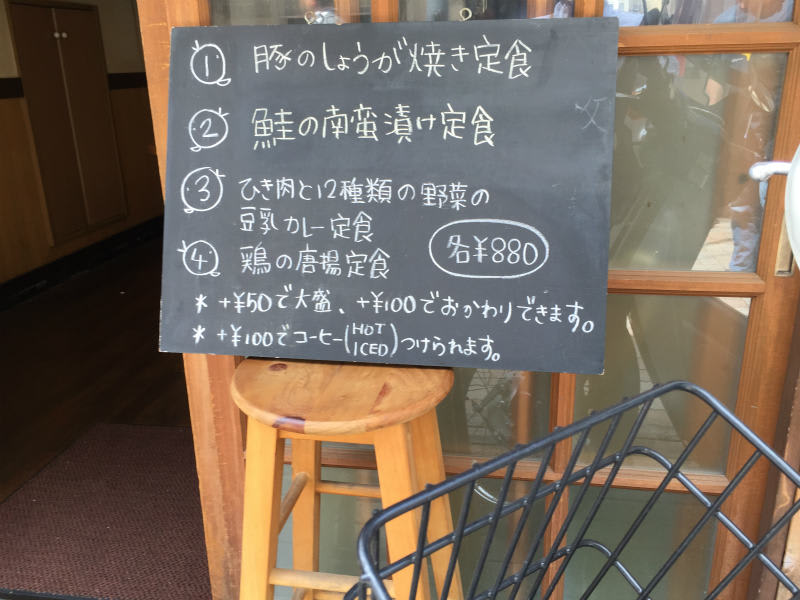 ① 豚のしょうが焼き定食
② 鮭の南蛮漬け定食
③ ひき肉と12種類の野菜の
豆乳カレー定食
④ 鶏の唐揚定食
各¥880
* +¥50で大盛、+¥100でおかわりできます。
* +¥100でコーヒー(HOT ICED)つけられます。